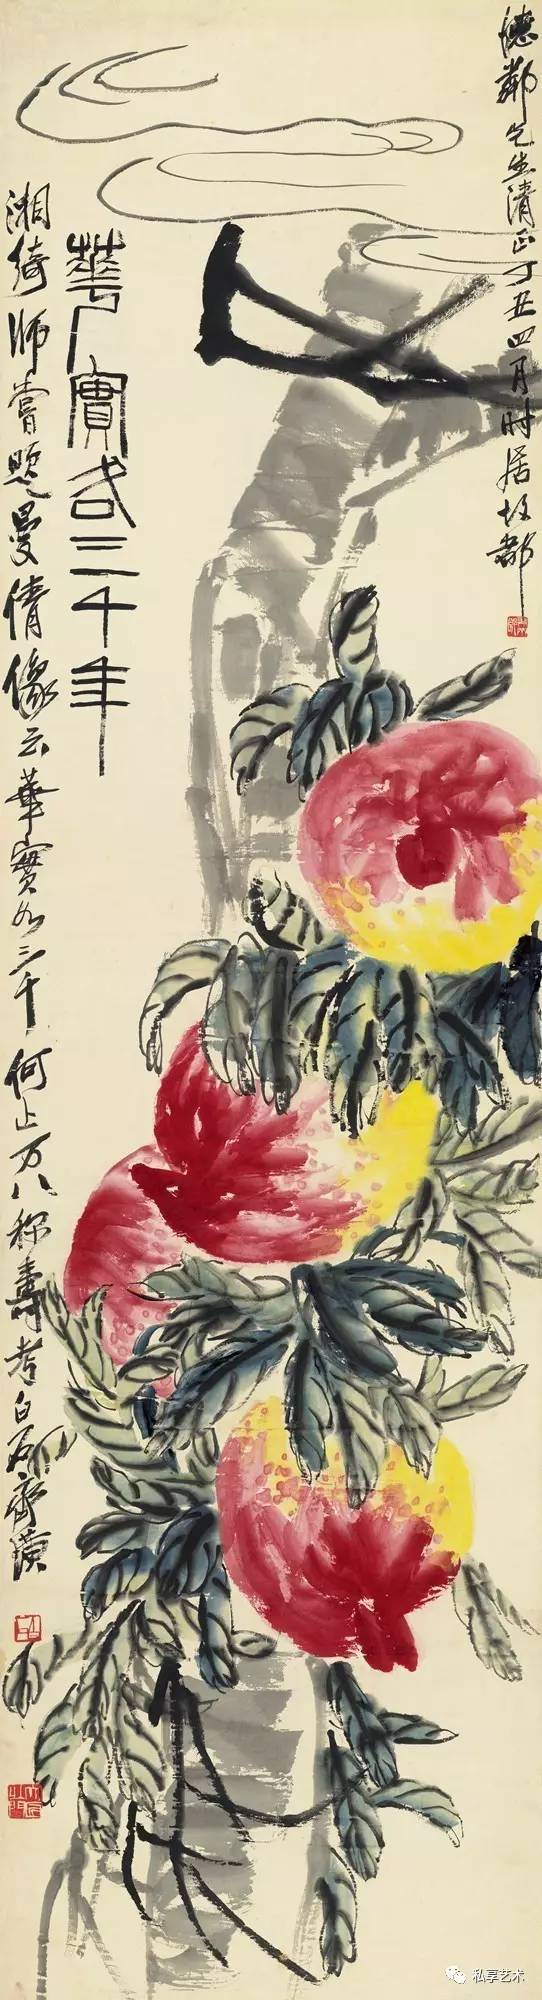 德邻先生清正丁丑四月时居故都
華實各三千年
湘綺师嘗题曼倩像云華實各三千何止万八称壽考白石齐璜
私享艺术